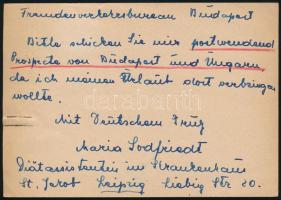 Fremdenverkehrsbureau Budapest
Bitte schicken Sie mir postwendend
Prospecte von Budapest und Ungarn
da ich meinen Urlaub dort verbringen
wollte.
Mit Deutschem Gruß
Maria Sodfriedt
Diätassistentin im Krankenhaus
St. Jakob Leipzig Liebig Str 20.
darabanth